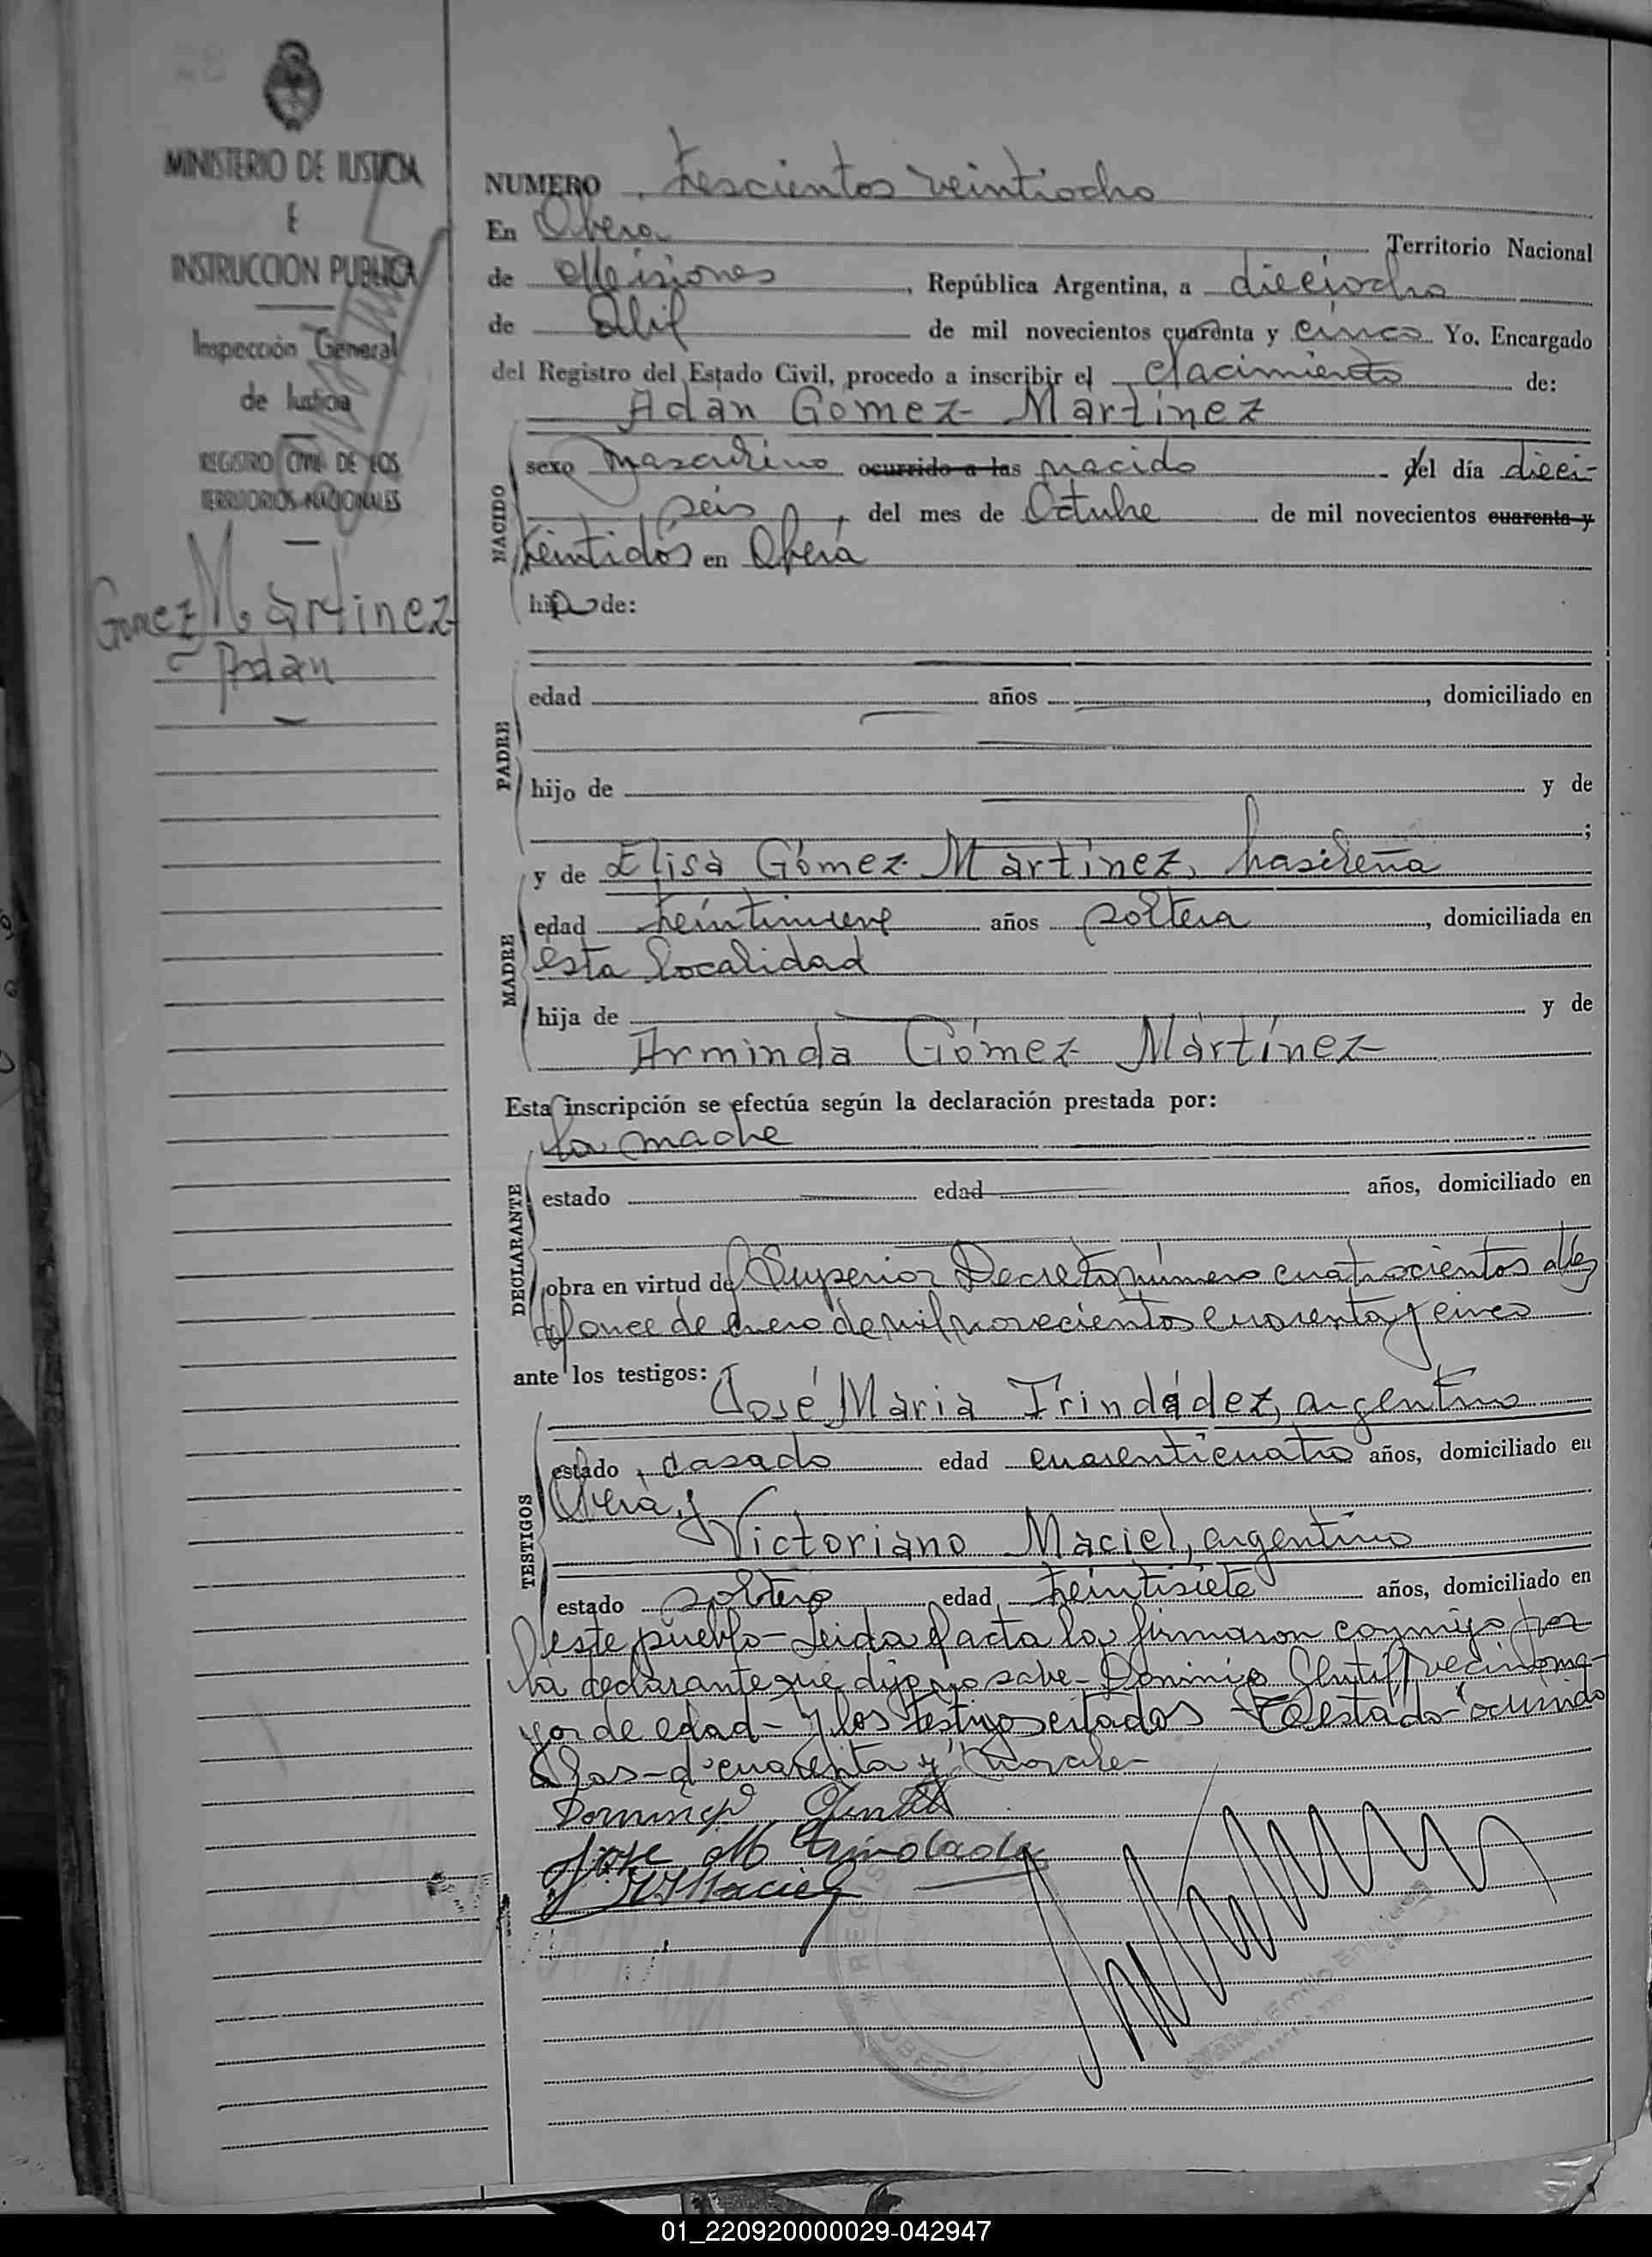 MINISTERIO DE JUSTICIA
E
INSTRUCCION PUBLICA
Inspección General
de Justicia
REGISTRO CIVIL DE LOS
TERRITORIOS NACIONALES
Gomez Martinez
Adan
NUMERO Trescientos veintiocho
En Oberá Territorio Nacional
de Misiones, República Argentina, a dieciocho
de Abril de mil novecientos cuarenta y cinco Yo, Encargado
del Registro del Estado Civil, procedo a inscribir el Nacimiento de:
Adán Gómez Martínez
NACIDO
sexo masculino ocurrido a las nacido del día dieci-
seis, del mes de Octubre de mil novecientos cuarenta y
treintidós en Oberá
hijo de:
PADRE
edad años , domiciliado en
hijo de y de
;
MADRE
y de Elisa Gómez Martínez, brasileña
edad treintinueve años soltera, domiciliada en
esta localidad
hija de y de
Arminda Gómez Martínez
Esta inscripción se efectúa según la declaración prestada por:
la madre
DECLARANTE
estado edad años, domiciliado en
obra en virtud del Superior Decreto número cuatrocientos diez
del once de Enero de mil novecientos cuarenta y cinco
ante los testigos:
José María Trindádez, argentino
TESTIGOS
estado casado edad cuarenticuatro años, domiciliado en
Oberá, y
Victoriano Maciel, argentino
estado soltero edad treintisiete años, domiciliado en
este pueblo- Leida el acta la firmaron conmigo por
la declarante que dijo no saber- Domingo vecino ma-
yor de edad- y los testigos citados - Testado "ocurrido
a las- d" cuarenta y"
Domingo
Jose M Trindade
V Maciel
REGIS
OBERA
01_220920000029-042947